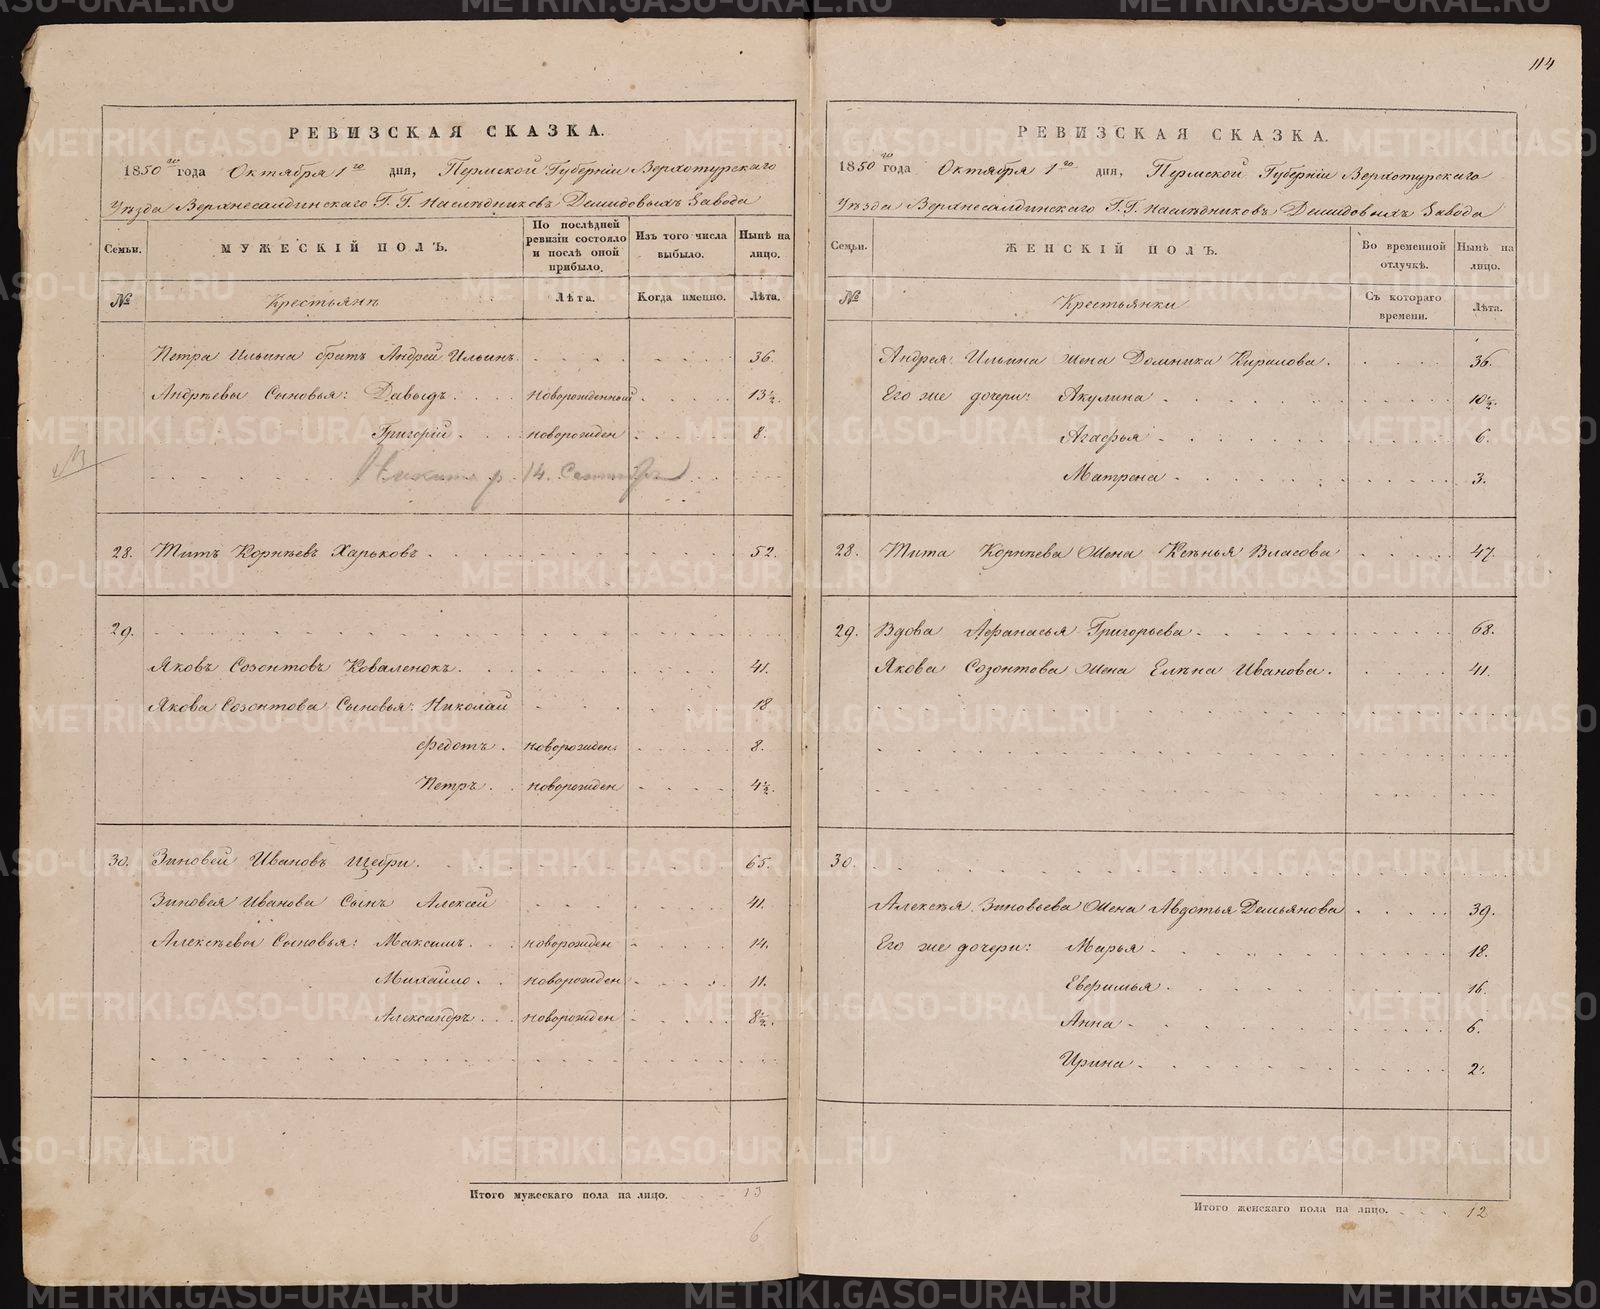 114
РЕВИЗСКАЯ СКАЗКА.
1850го года Октября 1го дня, Пермской Губерніи Верхотурскаго
Уѣзда Верхнесалдинскаго Г.Г. Наслѣдниковъ Демидовыхъ Завода
Семьи. МУЖЕСКІЙ ПОЛЪ. По послѣдней ревизіи состояло и послѣ оной прибыло. Изъ того числа выбыло. Нынѣ на лицо.
№ Крестьянъ Лѣта. Когда именно. Лѣта.
Петра Ильина братъ Андрей Ильинъ 36.
Андрѣевы Сыновья: Давыдъ новорожденный 13½.
Григорій новорожден 8.
Никита р. 14. Сентября
28. Титъ Корнѣевъ Харьковъ 52.
29.
Яковъ Созонтовъ Коваленокъ 41.
Якова Созонтова Сыновья: Николай 18
Федотъ новорожден 8.
Петръ новорожден 4½.
30. Зиновей Ивановъ Щебри 65.
Зиновея Иванова Сынъ Алексей 41.
Алексѣевы Сыновья: Максимъ новорожден 14.
Михайло новорожден 11.
Александръ новорожден 8½.
Итого мужескаго пола на лицо. 13
6
РЕВИЗСКАЯ СКАЗКА.
1850го года Октября 1го дня, Пермской Губерніи Верхотурскаго
Уѣзда Верхнесалдинскаго Г.Г. Наслѣдниковъ Демидовыхъ Завода
Семьи. ЖЕНСКІЙ ПОЛЪ. Во временной отлучкѣ. Нынѣ на лицо.
№ Крестьянки Съ котораго времени. Лѣта.
Андрея Ильина жена Домника Кирилова 36.
Его же дочери: Акулина 10½.
Агафья 6.
Матрена 3.
28. Тита Корнѣева жена Ксѣнья Власова 47.
29. Вдова Афанасья Григорьева 68.
Якова Созонтова жена Елѣна Иванова 41.
30.
Алексѣя Зиновьева жена Авдотья Демьянова 39.
Его же дочери: Марья 18.
Еверимья 16.
Анна 6.
Ирина 2.
Итого женскаго пола на лицо. 12
METRIKI.GASO-URAL.RU